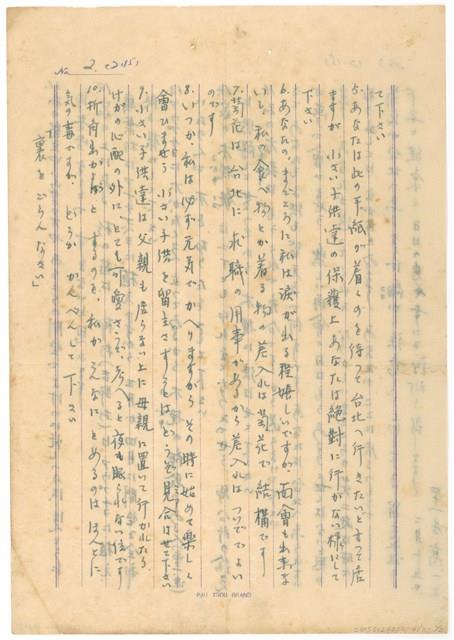 No 2. (2.15)
て下さい
5. あなたは此の手紙が着くのを待って台北へ行きたいと言って居
ますが 小さい子供達の保護上 あなたは絶対に行かない様にして
下さい
6. あなたの、まごころに私は涙が出る程嬉しいですが、面會も出来な
いし、私の食べ物とか着る物の差入れは芸花で結構です
7. 芸花は 台北に 求職の用事があるから 差入れは ついででよい
のです
8. いつか、私は必ず元気でかへりますから その時に始めて楽しく
會ひませう 小さい子供を留主さすことは どうぞ見合はせて下さい
9. 小さい子供達は父親も居らない上に母親に置いて行かれたら、
けがの心配の外に、とても可愛さうで、考へると夜も眠られない位です
10. 折角 するのを、私が こんなに とめるのは ほんとに
気の毒ですが、どうか かんべんして 下さい
裏をごらんなさい」
PAU TSOU BRAND